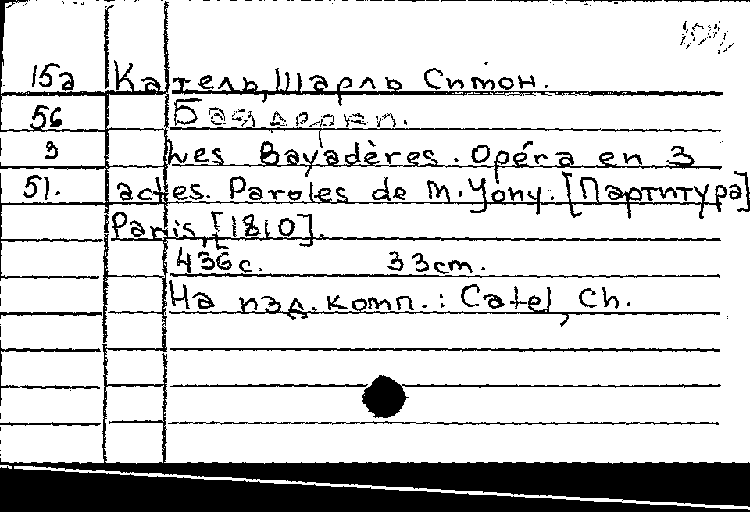 15а Катель, Шарль Симон.
56 Баядерки.
3 Les Bayadères. Opéra en 3
51. actes. Paroles de M. Jony. [Партитура]
Paris, [1810].
436 с. 33 cm.
На изд. комп.: Catel, Ch.